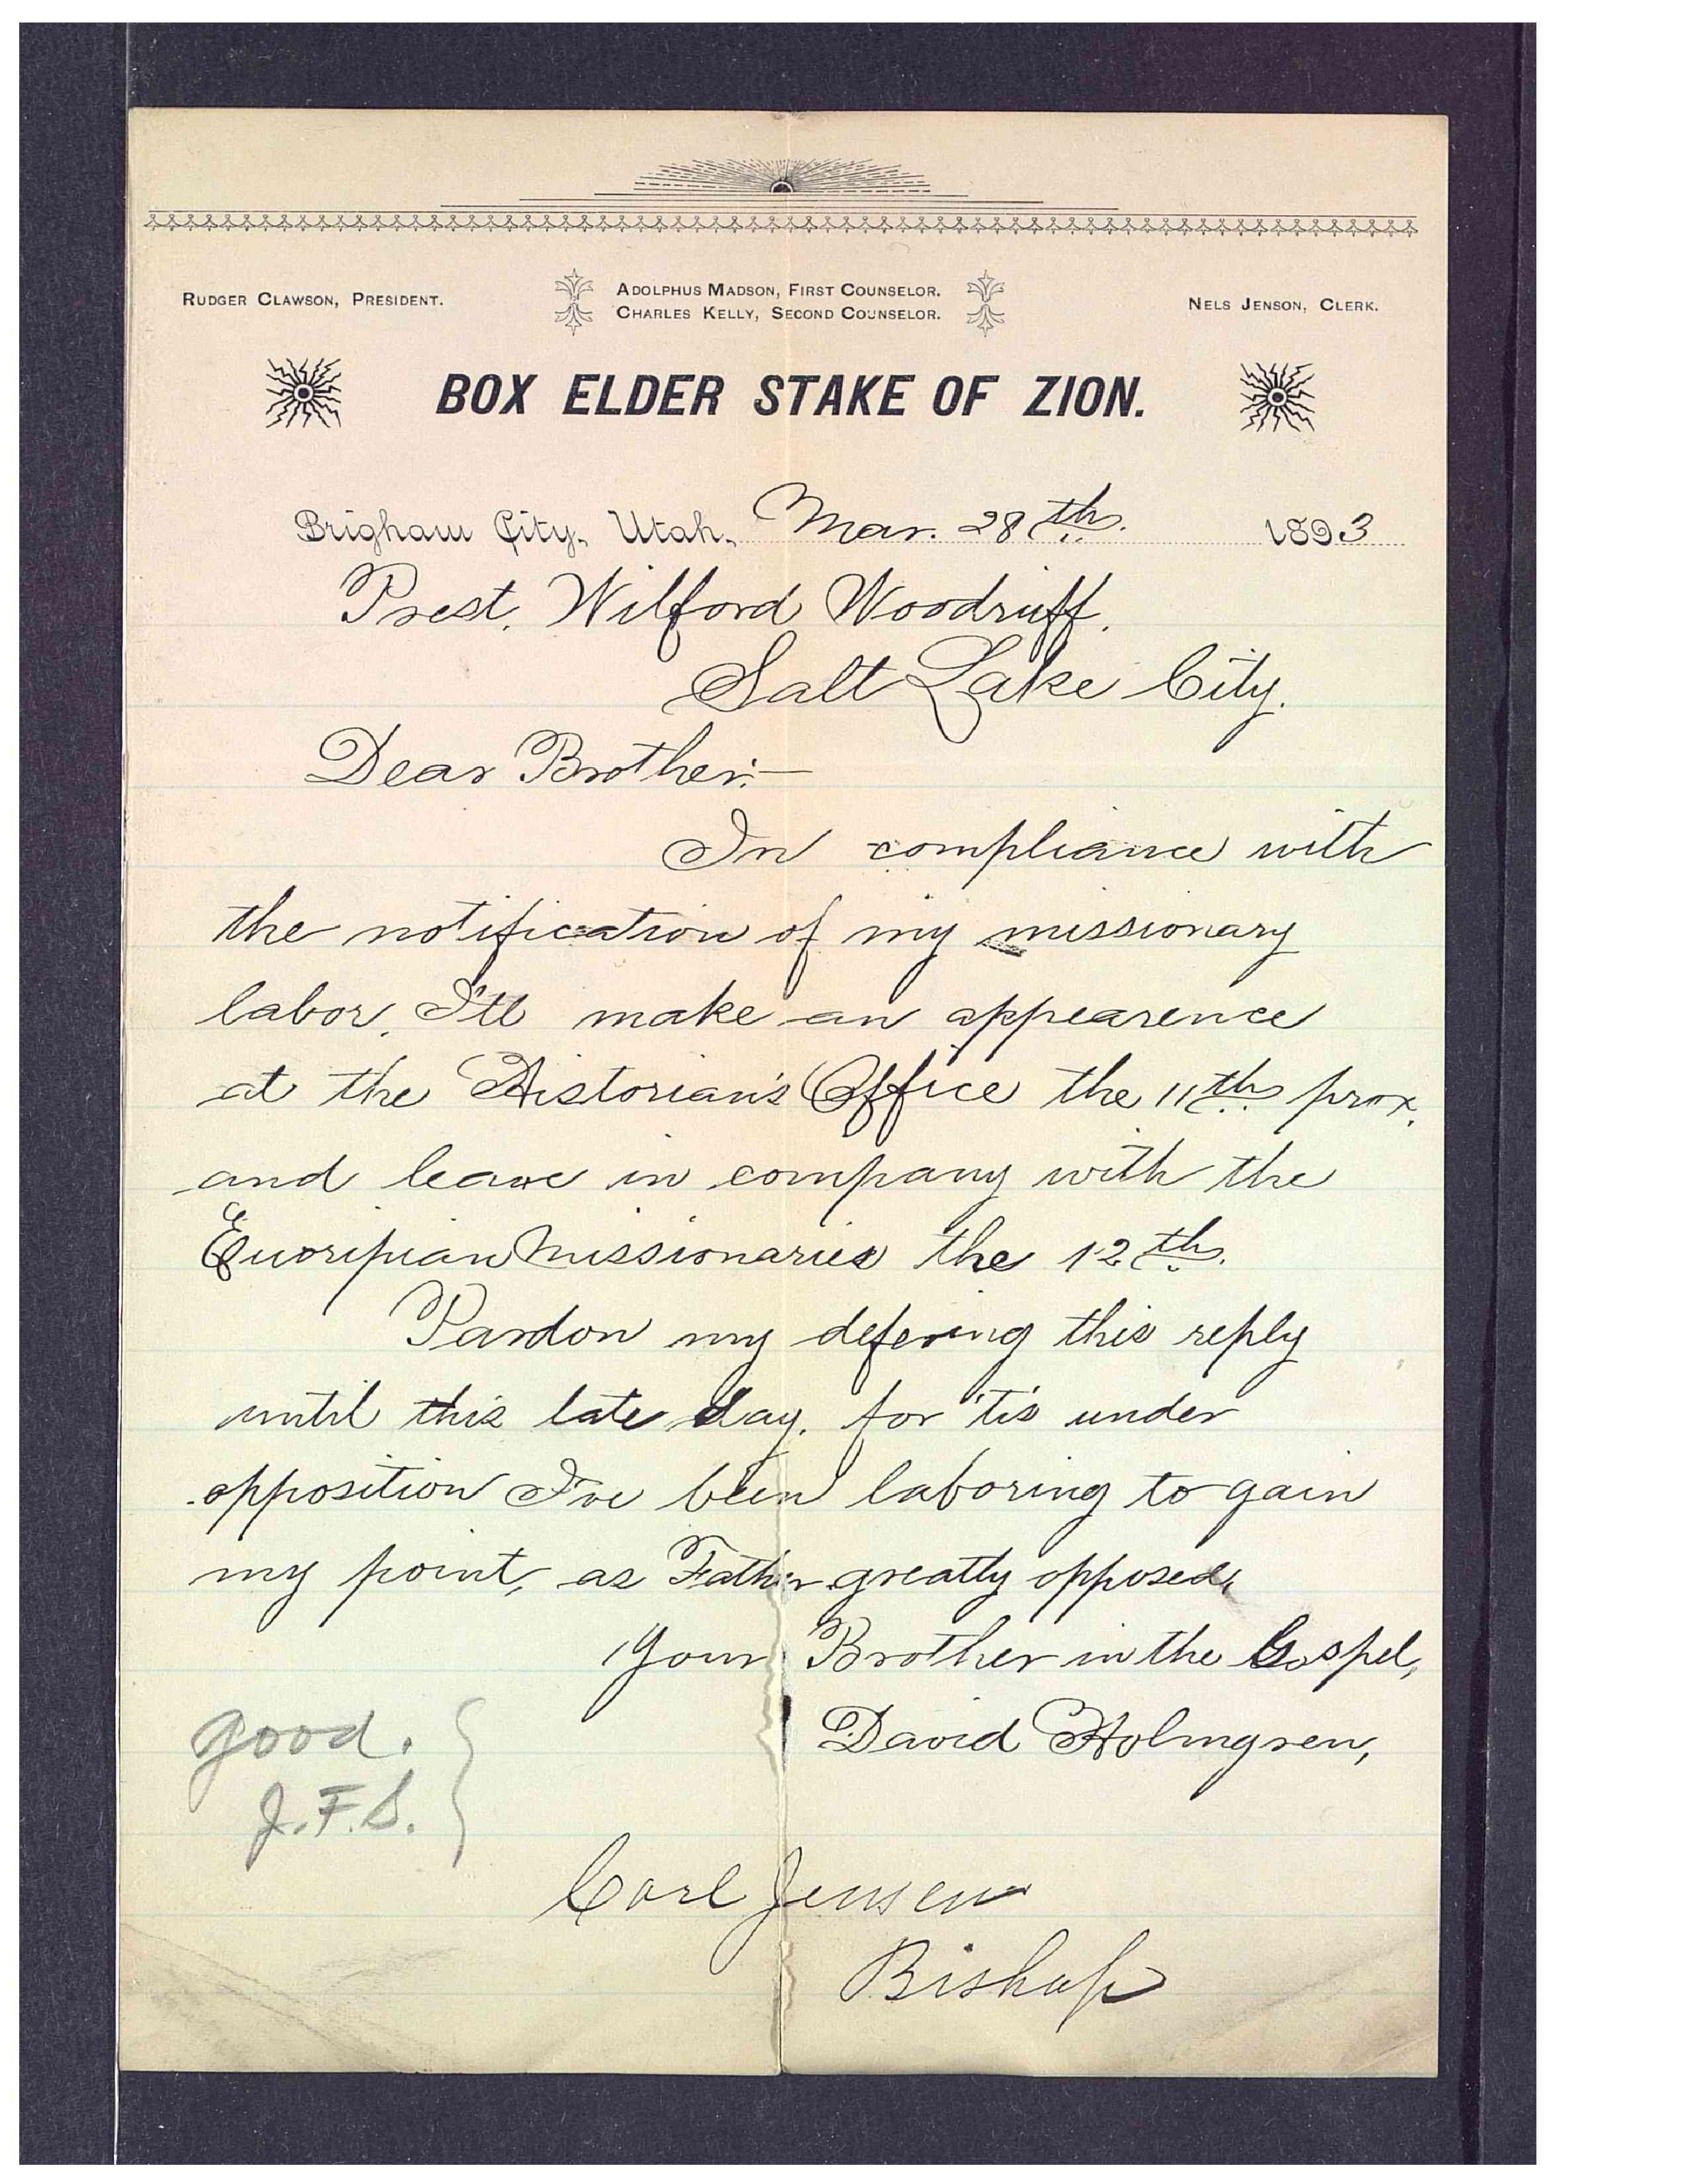 RUDGER CLAWSON, PRESIDENT.
ADOLPHUS MADSON, FIRST COUNSELOR.
CHARLES KELLY, SECOND COUNSELOR.
NELS JENSON, CLERK.
BOX ELDER STAKE OF ZION.
Brigham City, Utah, Mar. 28th. 1893
Prest. Wilford Woodruff.
Salt Lake City.
Dear Brother:—
In compliance with
the notification of my missionary
labor, I'll make an appearence
at the Historian's Office the 11th prox.
and leave in company with the
Euoripian Missionaries the 12th.
Pardon my defering this reply
until this late day, for 'tis under
opposition I've been laboring to gain
my point, as Father greatly opposed,
Your Brother in the Gospel,
David Holmgren,
good.
J.F.S.
Carl Jensen
Bishop